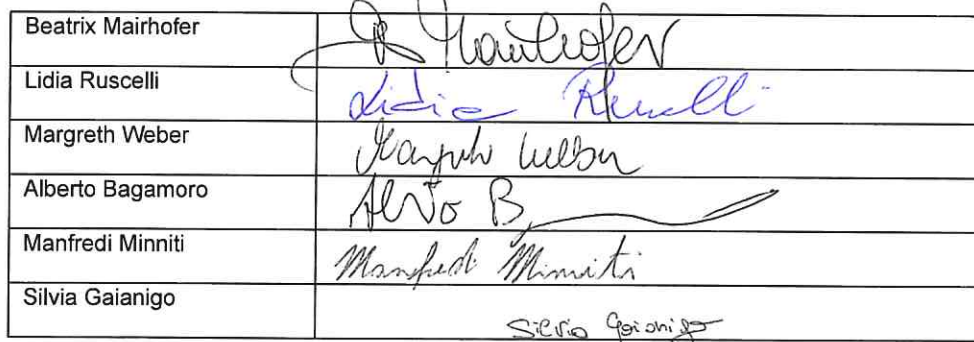 Beatrix Mairhofer B Mairhofer
Lidia Ruscelli Lidia Ruscelli
Margreth Weber Margreth Weber
Alberto Bagamoro Alberto B
Manfredi Minniti Manfredi Minniti
Silvia Gaianigo Silvia Gaianigo